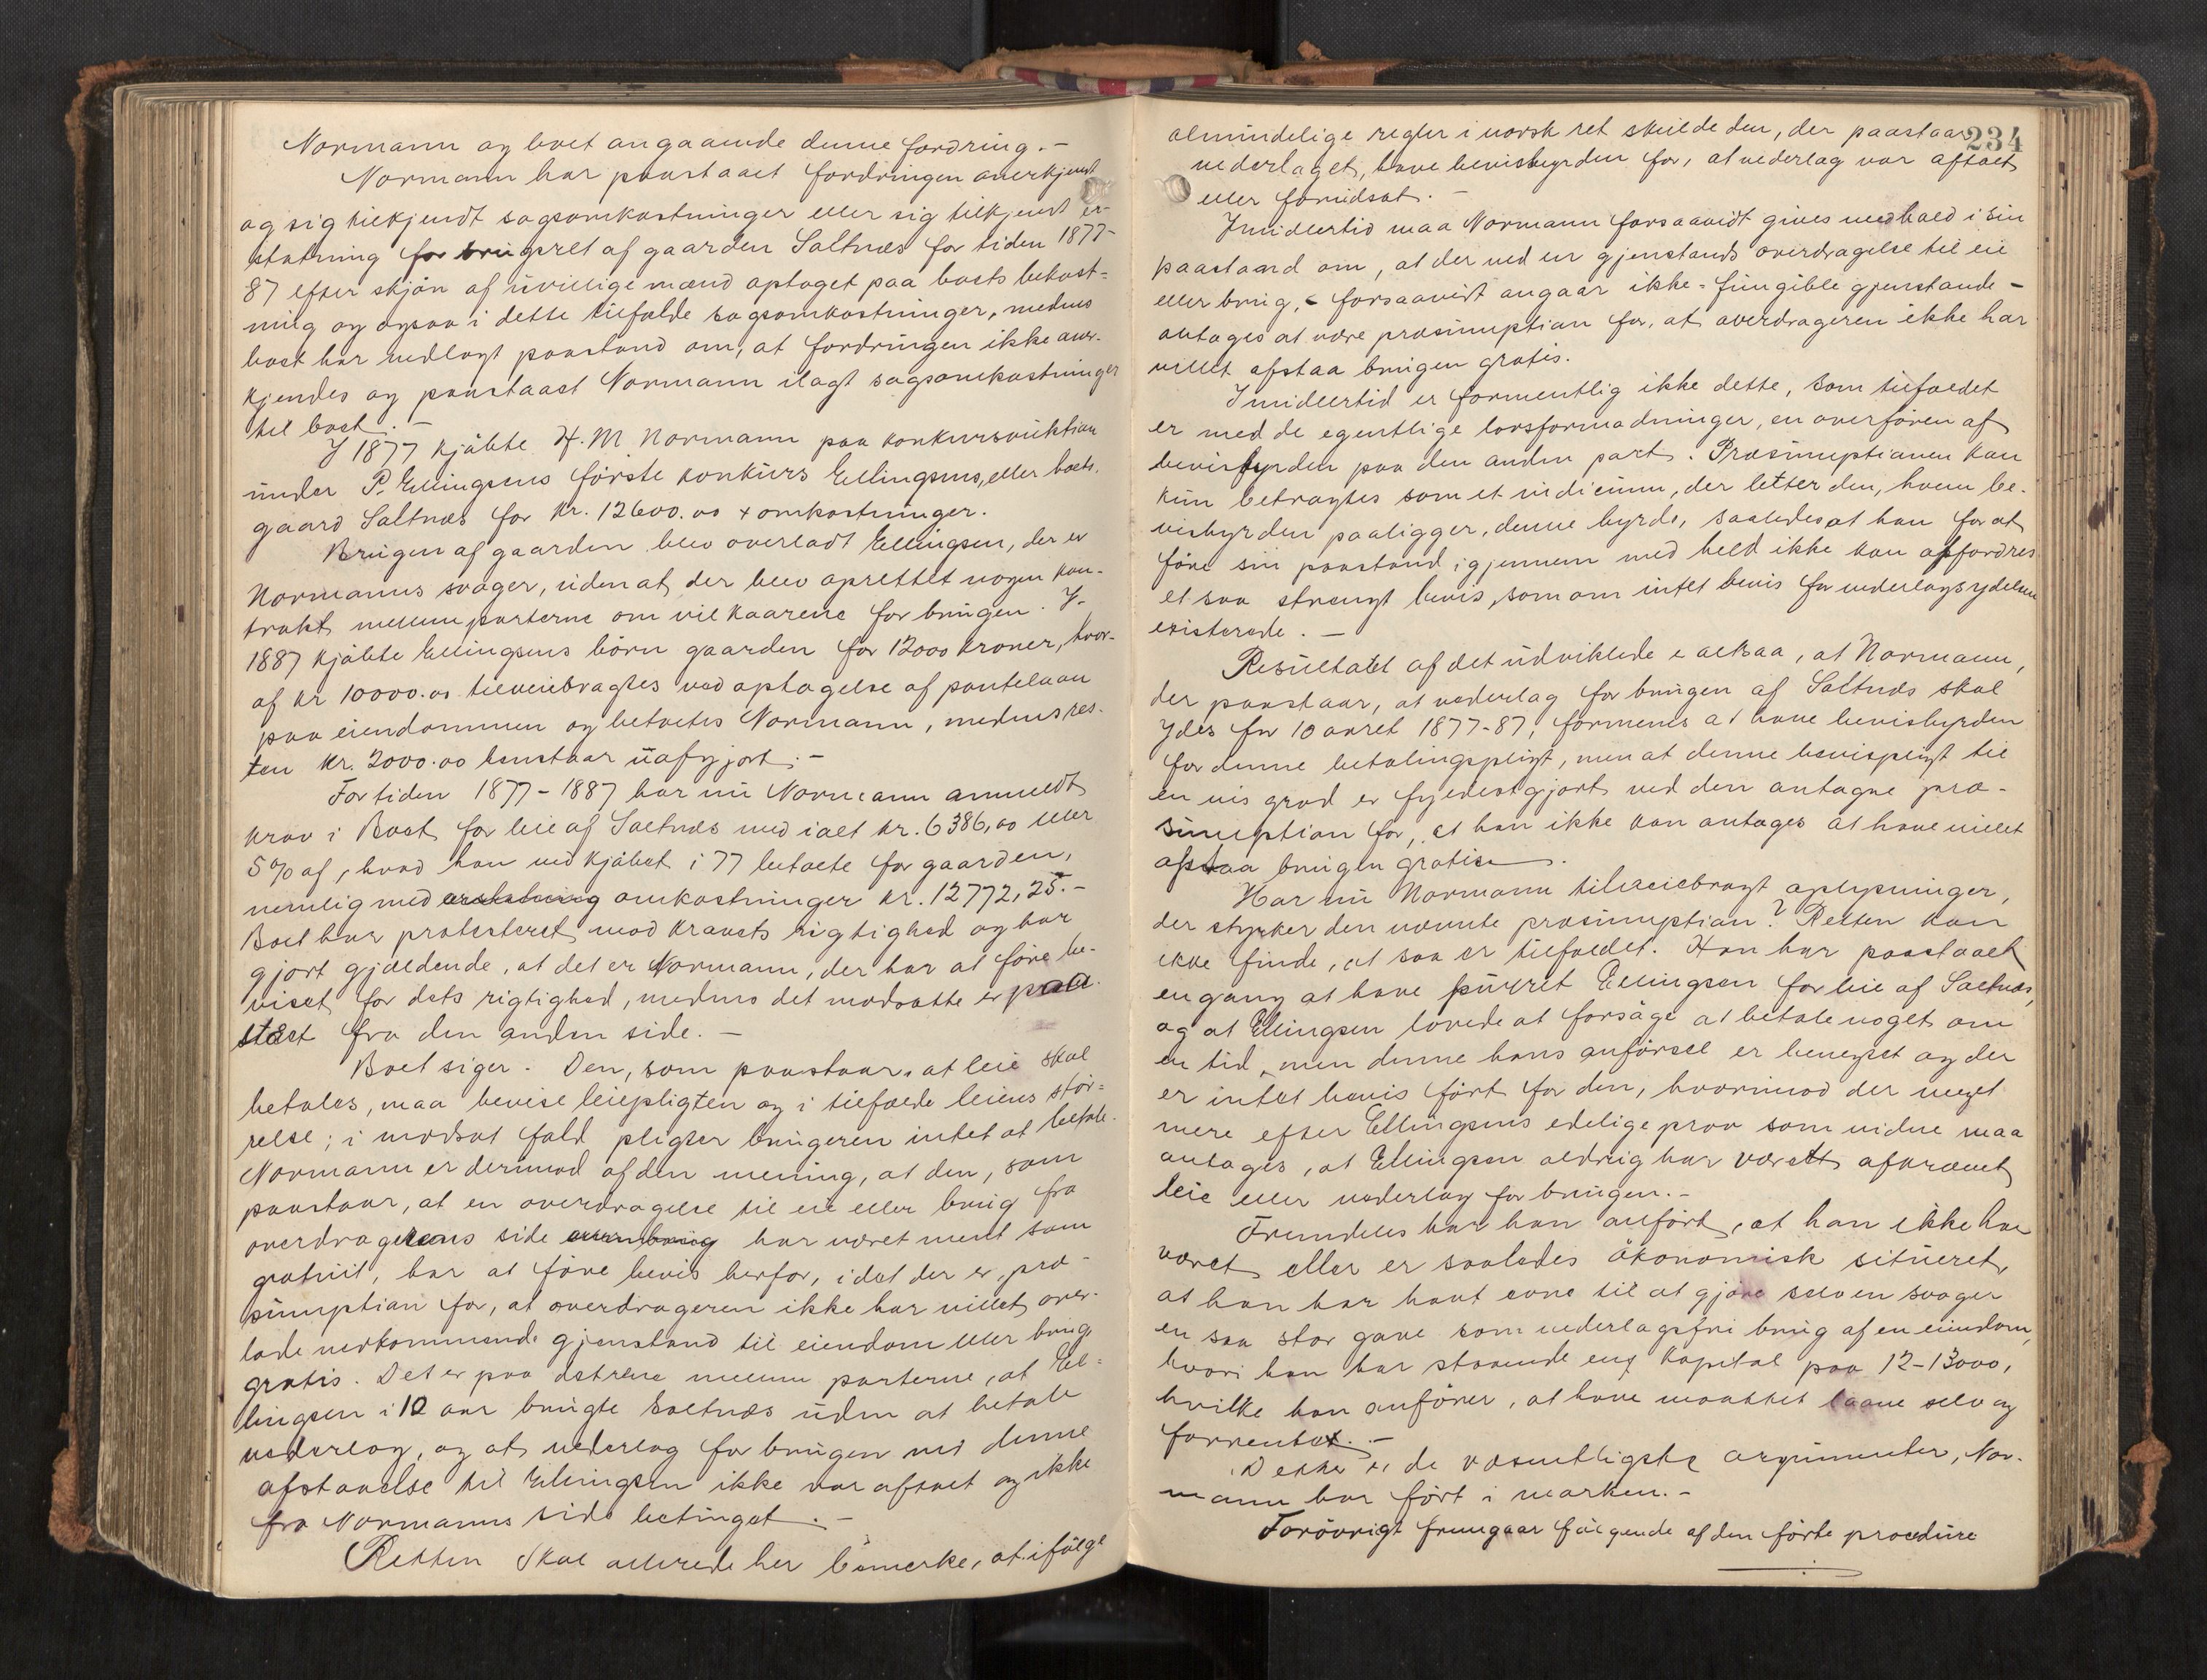 Normann og boet angaaende denne fordring. -
Normann har paastaaet fordringen anerkjendt
og sig tilkjendt sagsomkostninger eller sig tilkjendt er-
statning for brugsret af gaarden Saltnæs for tiden 1877-
87 efter skjøn af uvillige mænd optaget paa boets bekost-
ning og ogsaa i dette tilfælde sagsomkostninger, medens
boet har nedlagt paastand om, at fordringen ikke aner-
kjendes og paastaaet Normann ilagt sagsomkostninger
til boet. -
I 1877 kjøbte H. M Normann paa konkursauktion
under P. Ellingsens første konkurs Ellingsens, eller boets,
gaard Saltnæs for kr. 12600.00 + omkostninger.
Brugen af gaarden blev overladt Ellingsen, der er
Normanns svager, uden at der blev oprettet nogen kon-
trakt mellem parterne om vilkaarene for brugen. I
1887 kjøbte Ellingsens børn gaarden for 12000 kroner, hvor-
af kr 10000.00 tilveiebragtes ved optagelse af pantelaan
paa eiendommen og betaltes Normann, medens res-
ten kr. 2000.00 henstaar uafgjort. -
For tiden 1877 - 1887 har nu Normann anmeldt
krav i Boet for leie af Saltnæs med ialt kr. 6386,00 eller
5% af, hvad han ved kjøbet i 77 betalte for gaarden,
nemlig med erstatning omkostninger kr. 12772,25. -
Boet har protesteret mod kravets rigtighed og har
gjort gjældende, at det er Normann, der har at føre be-
viset for dets rigtighed, medens det modsatte er paa-
staaet fra den anden side. -
Boet siger. Den, som paastaar, at leie skal
betales, maa bevise leiepligten og i tilfælde leiens stør-
relse; i modsat fald pligter brugeren intet at betale.
Normann er derimod af den mening, at den, som
paastaar, at en overdragelse til eie eller brug fra
overdragerens side har været ment som
gratuit, har at føre bevis herfor, idet der er præ-
sumption for, at overdrageren ikke har villet over-
lade vedkommende gjenstand til eiendom eller brug
gratis. Det er paa det rene mellem parterne, at El-
lingsen i 10 aar brugte Saltnæs uden at betale
vederlag, og at vederlag for brugen ved denne
afstaaelse til Ellingsen ikke var aftalt og ikke
fra Normanns side betinget. -
Retten skal allerede her bemerke, at ifølge
234
almindelige regler i norsk ret skulde den, der paastaar
vederlaget, have bevisbyrden for, at vederlag var aftalt
eller forudsat. -
Imidlertid maa Normann forsaavidt gives medhold i sin
paastand om, at der ved en gjenstands overdragelse til eie
eller brug, - forsaavidt angaar ikke-fungible gjenstande -
antages at være præsumption for, at overdrageren ikke har
villet afstaa brugen gratis.
Imidlertid er formentlig ikke dette, som tilfældet
er med de egentlige lovsformodninger, en overføren af
bevisbyrden paa den anden part. Præsumptionen kan
kun betragtes som et indicium, der letter den, hvem be-
visbyrden paaligger, denne byrde, saaledes at han for at
føre sin paastand igjennem med held ikke kan affordres
et saa strengt bevis, som om intet bevis for vederlagsydelsen
existerede. -
Resultatet af det udviklede e altsaa, at Normann,
der paastaar, at vederlag for brugen af Saltnæs skal
ydes for 10 aaret 1877-87, formenes at have bevisbyrden
for denne betalingspligt, men at denne bevispligt til
en vis grad er fyldestgjort ved den antagne præ-
sumption for, at han ikke kan antages at have villet
afstaa brugen gratis.
Har nu Normann tilveiebragt oplysninger,
der styrker den nævnte præsumption? Retten kan
ikke finde, at saa er tilfældet. Han har paastaaet
engang at have purret Ellingsen for leie af Saltnæs,
og at Ellingsen lovede at forsøge at betale noget om
en tid, men denne hans anførsel er benegtet og der
er intet bevis ført for den, hvorimod der meget
mere efter Ellingsens edelige prov som vidne maa
antages, at Ellingsen aldrig har værett afkrævet
leie eller vederlag for brugen. -
Fremdeles har han anført, at han ikke har
været eller er saaledes økonomisk situeret,
at han har havt evne til at gjøre selv en svager
en saa stor gave som vederlagsfri brug af en eiendom,
hvori han har staaende en kapital paa 12-13000,
hvilke han anfører, at have maattet laane selv og
forrentet. -
Dette er de væsentligste argumenter, Nor-
mann har ført i marken. -
Forøvrigt fremgaar følgende af den førte procedure